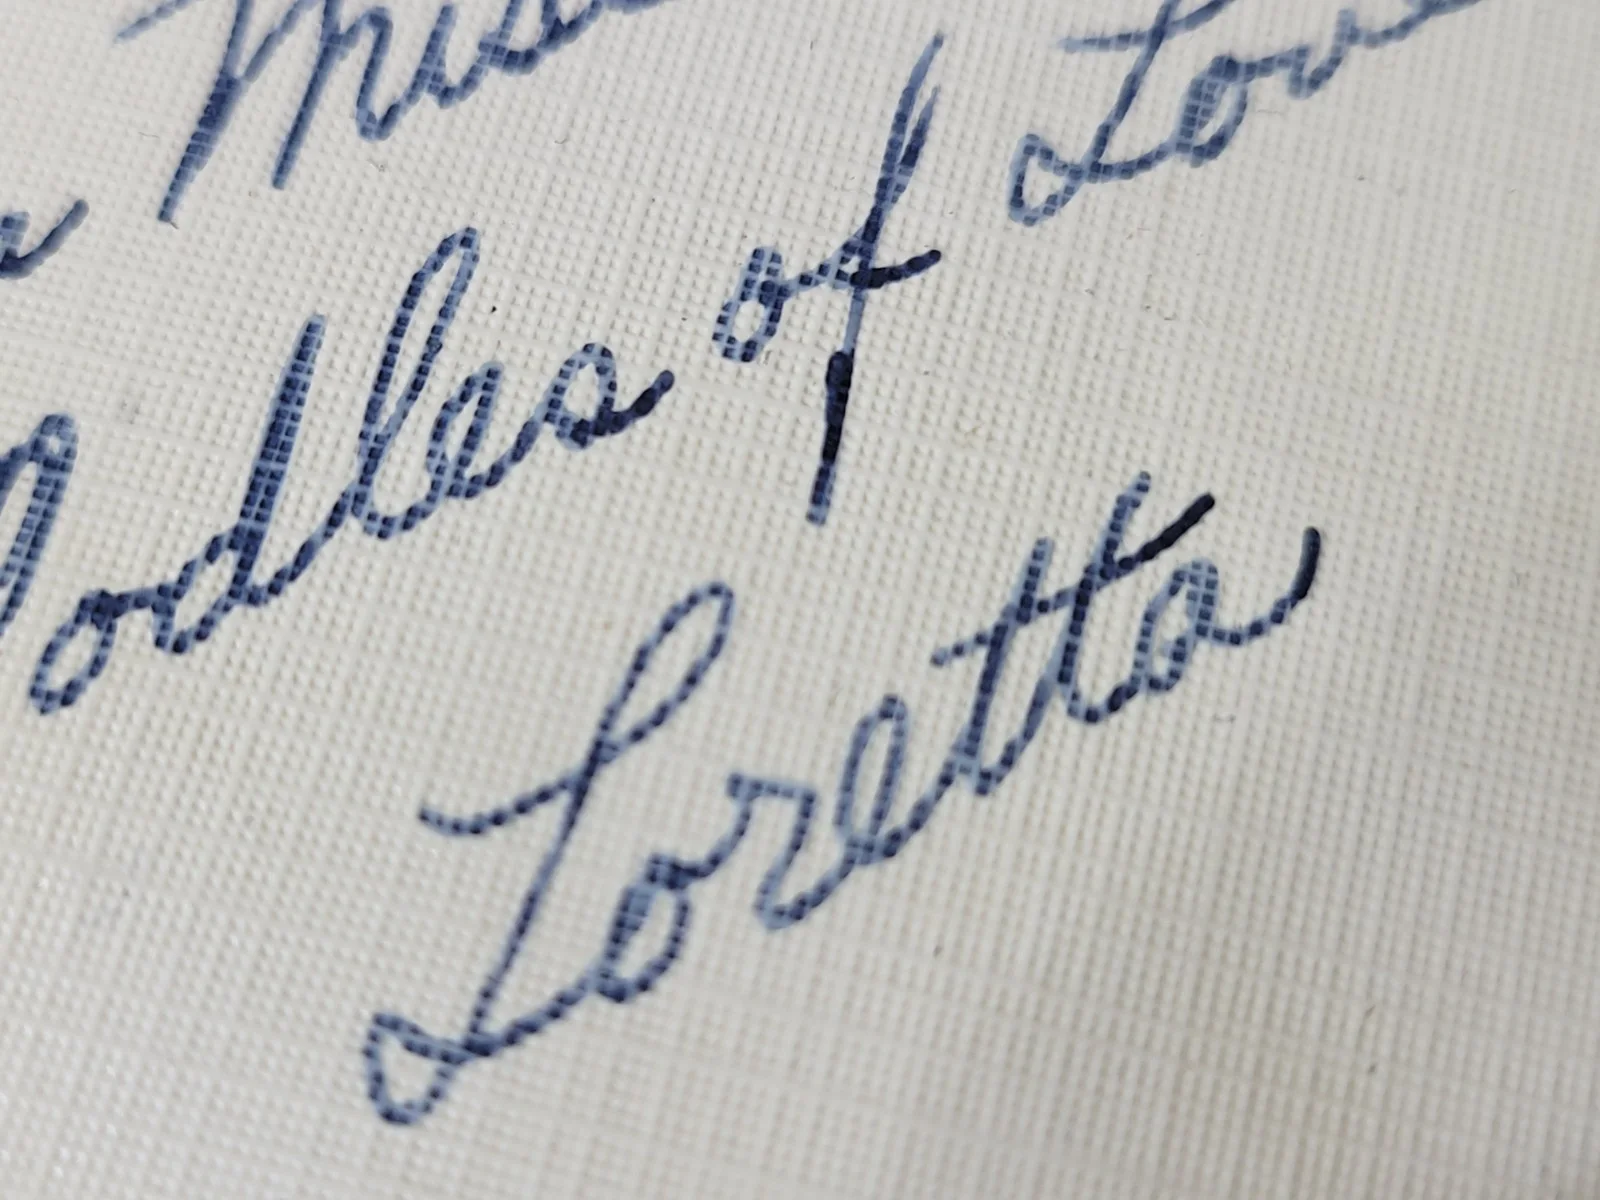 Miss
Oodles of Love
Loretta